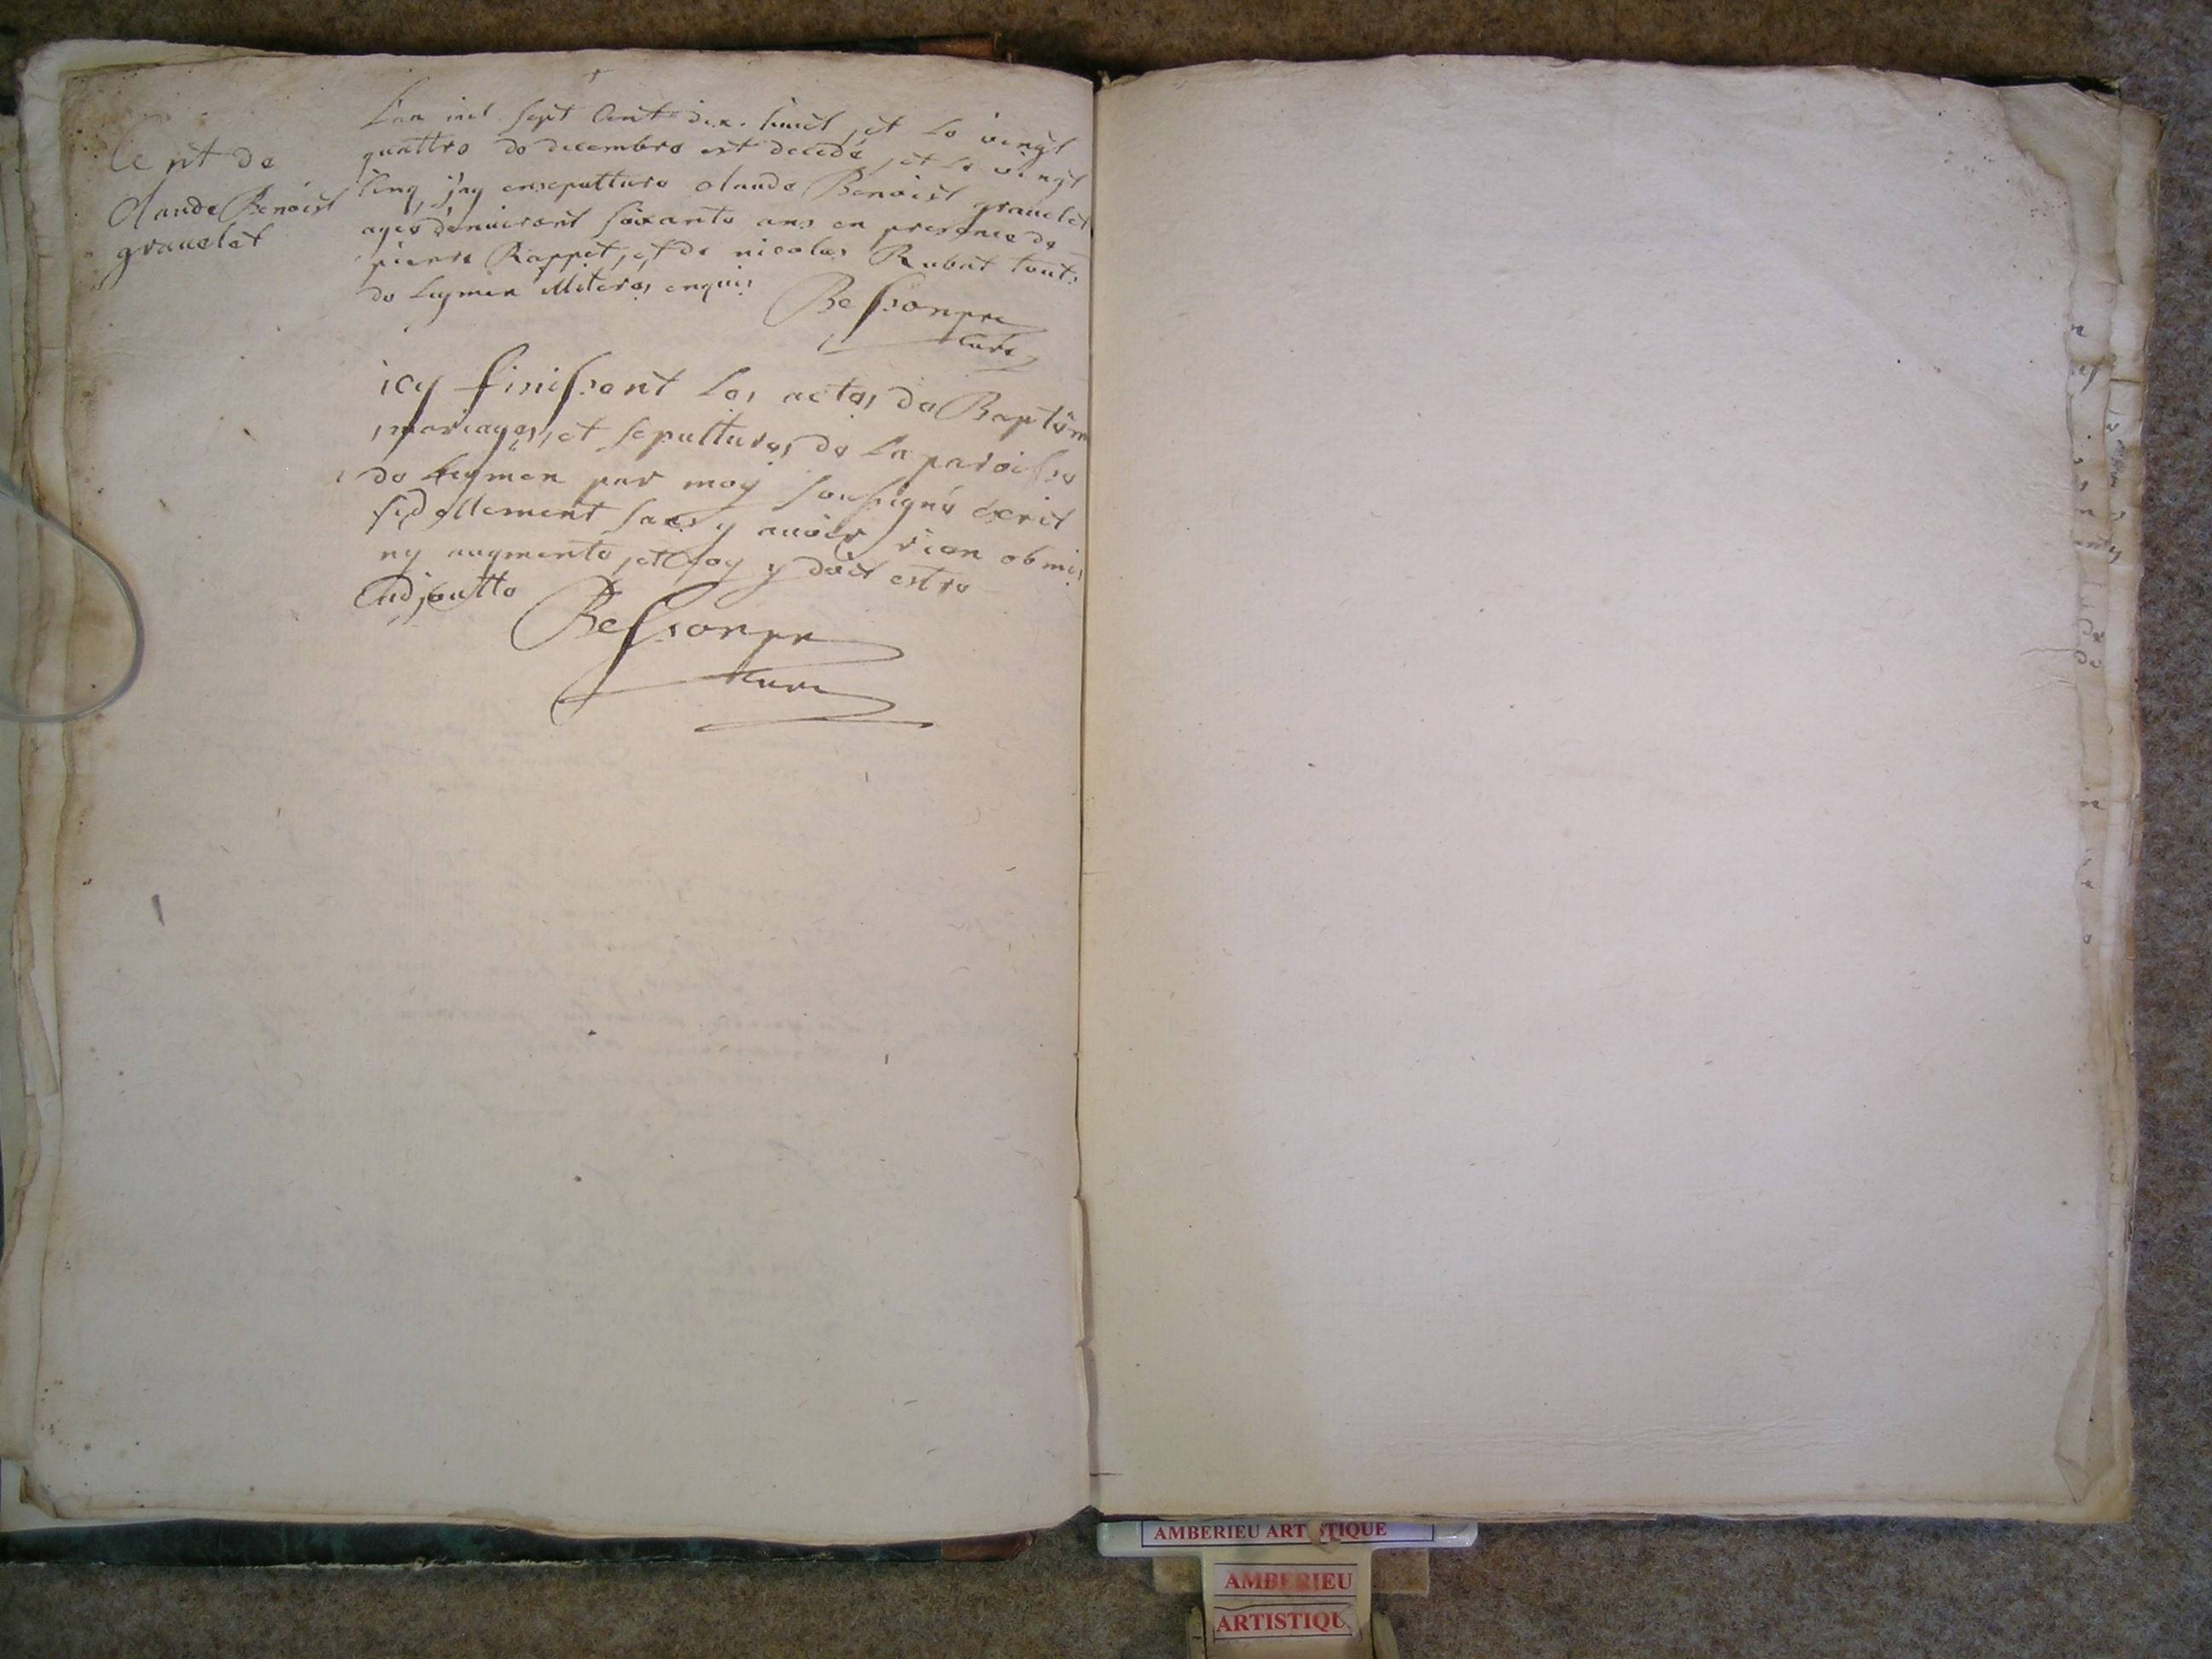 Lan mil sept Cent dix huict, et Le vingt
quattre de decembre est decedé, et Le vingt
Cinq j'ay ensepulture claude Benoist gravelet
agés d'enuiront soixante ans en presence de
pierre Rappet, et de nicolas Rubat touts
de Leymen illiteres enquis
Bessonpre
Curé
de
claude Benoist
gravelet
icy finissent Les actes de Baptêm
mariages, et sepultures de La paroisse
de Leymen par moy soussigné écrit
fidellement sans y avoir rien obmis
ny augmenté, et foy y doit estre
adjoutte
Bessonpre
Curé
AMBERIEU ARTISTIQUE
AMBERIEU
ARTISTIQUE